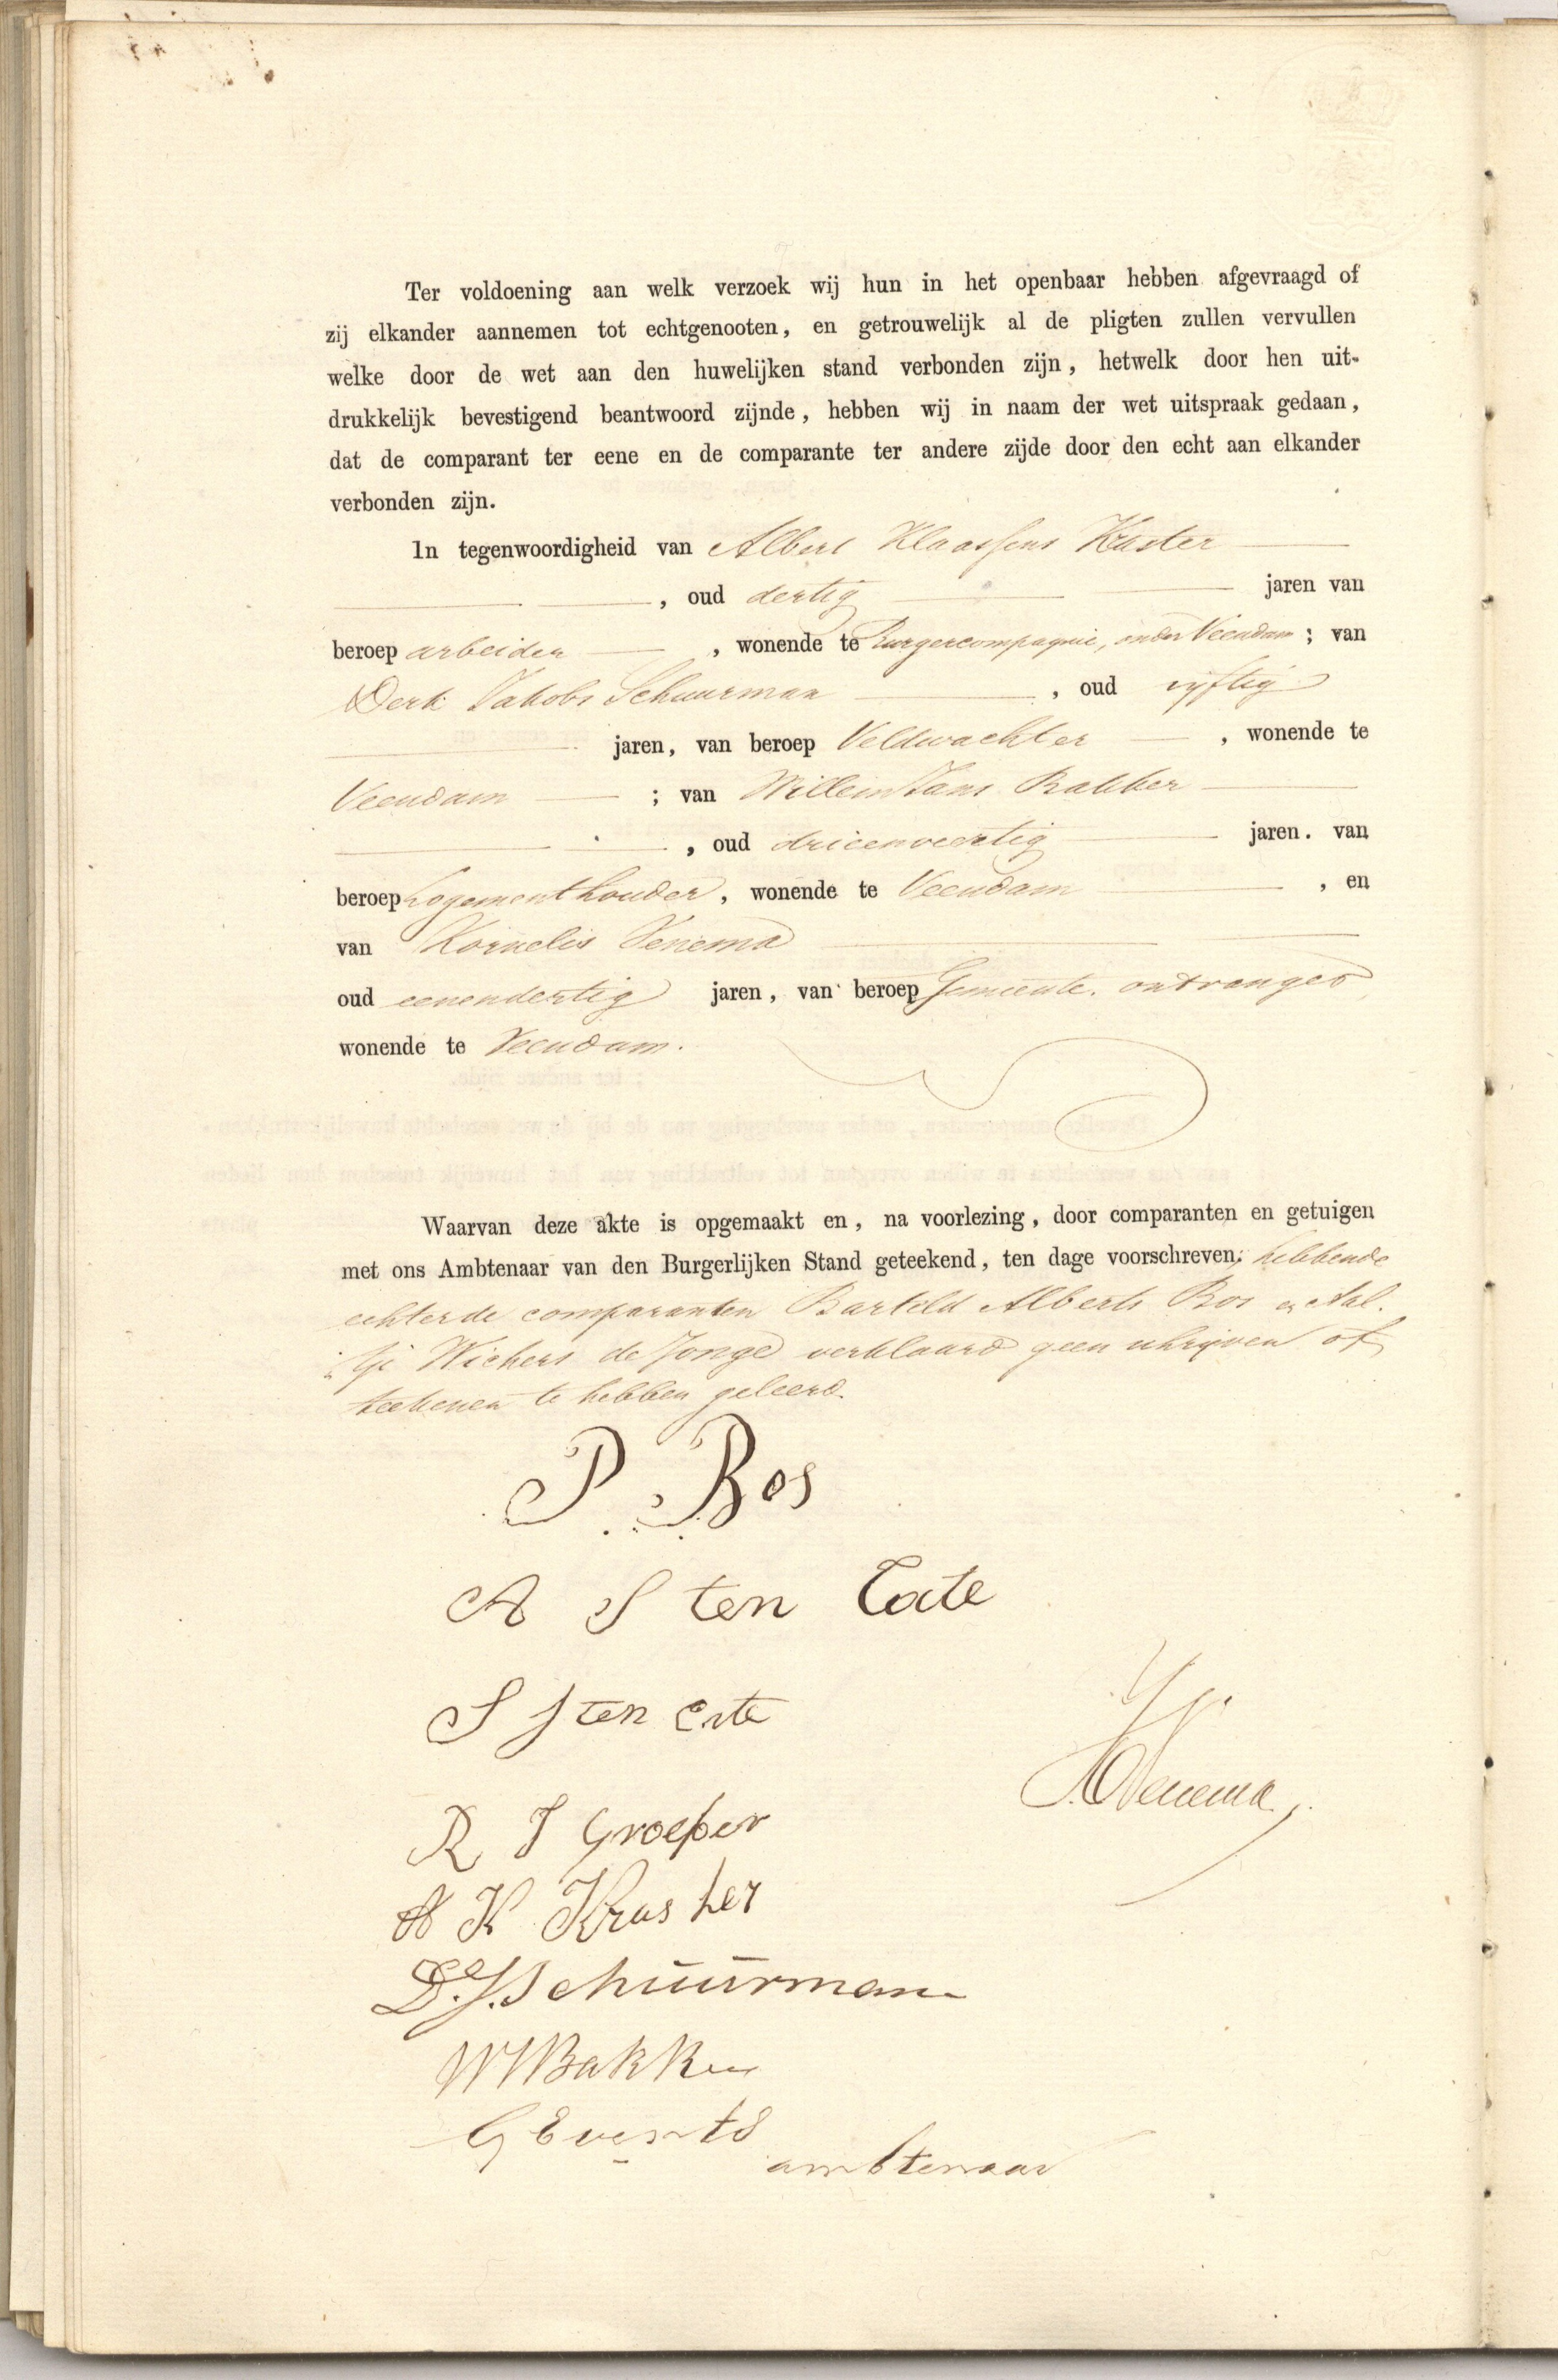 Ter voldoening aan welk verzoek wij hun in het openbaar hebben afgevraagd of
zij elkander aannemen tot echtgenooten, en getrouwelijk al de pligten zullen vervullen
welke door de wet aan den huwelijken stand verbonden zijn, hetwelk door hen uit-
drukkelijk bevestigend beantwoord zijnde, hebben wij in naam der wet uitspraak gedaan,
dat de comparant ter eene en de comparante ter andere zijde door den echt aan elkander
verbonden zijn.
In tegenwoordigheid van Albert Klaassens
, oud dertig jaren van
beroep arbeider, wonende te Burgercompagnie, onder Veendam; van
Derk Jakobs Schuurman, oud vyftig
jaren, van beroep Veldwachter, wonende te
Veendam; van Willem Jans Bakker
, oud drieenveertig jaren. van
beroep Logementhouder, wonende te Veendam, en
van Kornelis Venema
oud eenendertig jaren, van beroep Gemeente. ontvanger
wonende te Veendam.
Waarvan deze akte is opgemaakt en, na voorlezing, door comparanten en getuigen
met ons Ambtenaar van den Burgerlijken Stand geteekend, ten dage voorschreven, hebbende
echter de comparanten Barteld Alberts Bos en Aal.
tje Wichers de Jonge verklaard geen schrijven of
teekenen te hebben geleerd.
P. Bos
A J ten Cate
S J ten Cate
K Venema
R J Groeper
A K Kruster
D. J. Schuurman
W J Bakker
G Everts
ambtenaar